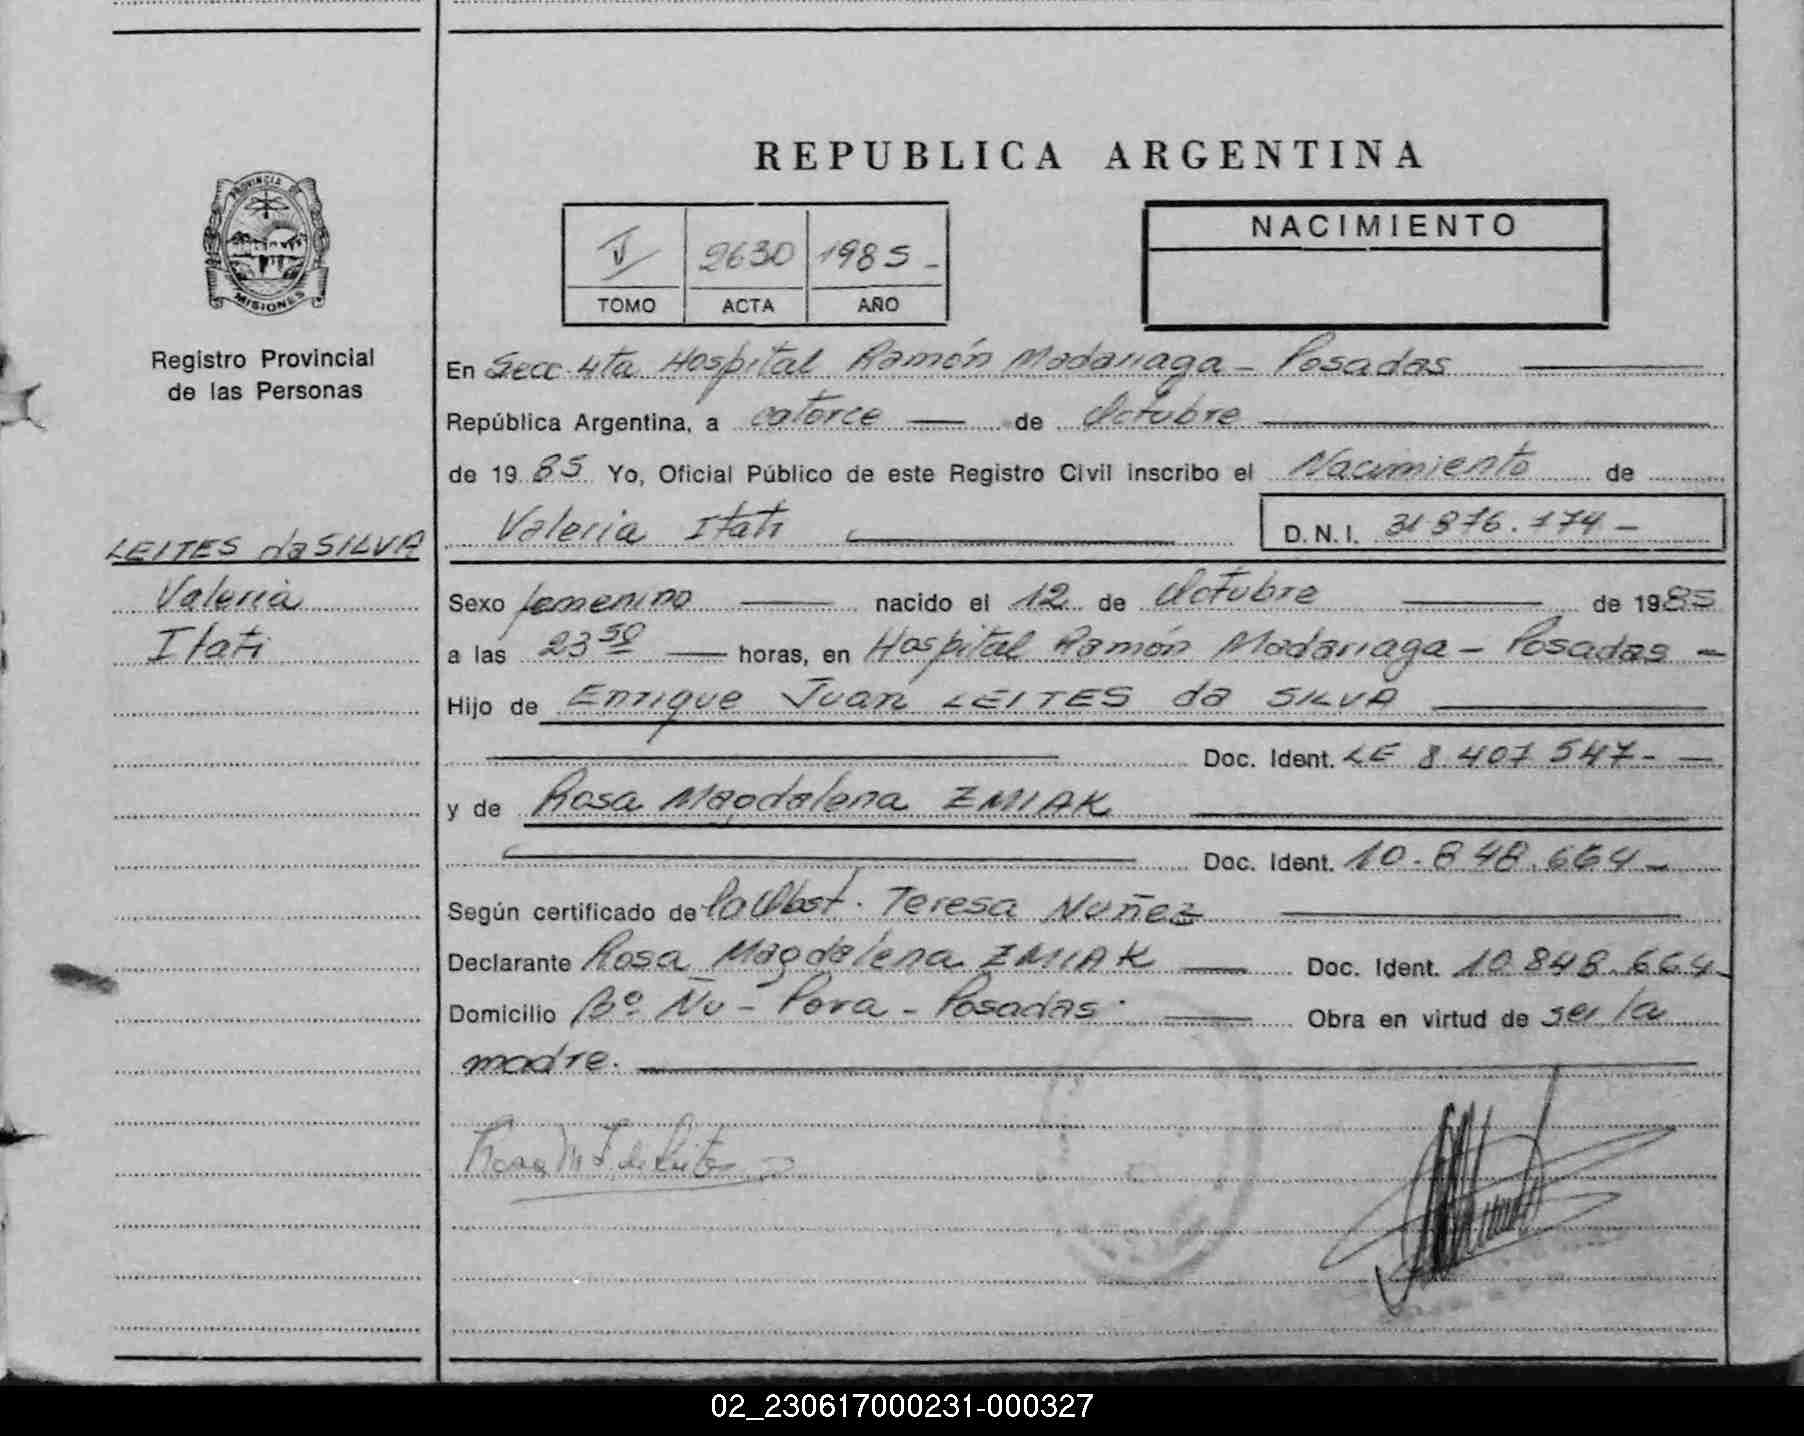 REPUBLICA ARGENTINA
PROVINCIA DE
MISIONES
Registro Provincial
de las Personas
V 2630 1985-
TOMO ACTA AÑO
NACIMIENTO
En Secc. 4ta Hospital Ramón Madariaga - Posadas
República Argentina, a catorce de Octubre
de 1985 Yo, Oficial Público de este Registro Civil inscribo el Nacimiento de
Valeria Itati D.N.I. 31 876.174-
LEITES da SILVA
Valeria
Itati
Sexo femenino nacido el 12 de Octubre de 1985
a las 23 50 horas, en Hospital Ramón Madariaga - Posadas -
Hijo de Enrique Juan LEITES da SILVA
Doc. Ident. LE 8.407 547-
y de Rosa Magdalena ZMIAK
Doc. Ident. 10.848.664-
Según certificado de Obst. Teresa Nuñez
Declarante Rosa Magdalena ZMIAK Doc. Ident. 10.848.664-
Domicilio Bº Ñu - Pora - Posadas. Obra en virtud de ser la
madre.
02_230617000231-000327